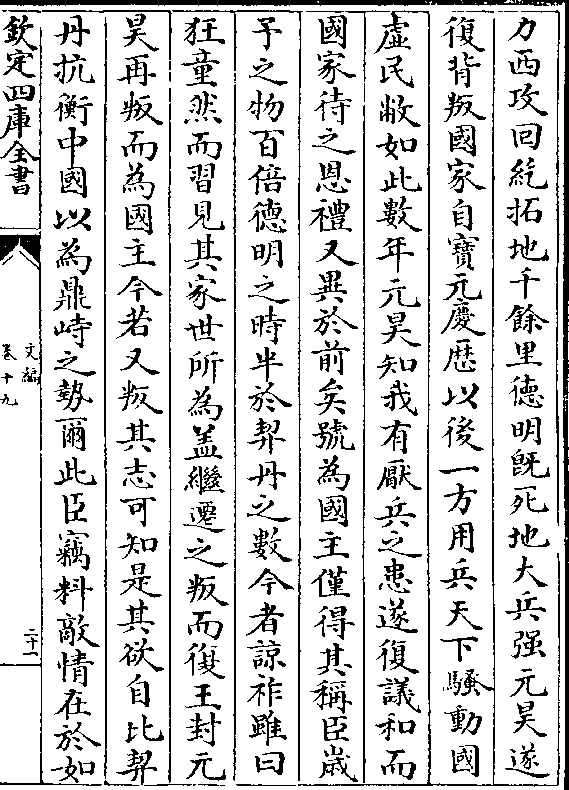 力西攻回紇拓地千餘里德明既死地大兵强元昊遂
復背叛國家自寶元慶歴以後一方用兵天下騷動國
虚民敝如此數年元昊知我有厭兵之患遂復議和而
國家待之恩禮又異於前矣號為國主僅得其稱臣歳
予之物百倍德明之時半於契丹之數今者諒祚雖曰
狂童然而習見其家世所為盖繼遷之叛而復王封元
昊再叛而為國主今若又叛其志可知是其欲自比契
丹抗衡中國以為鼎峙之勢爾此臣竊料敵情在於如
欽定四庫全書
文編
卷十九
二十一